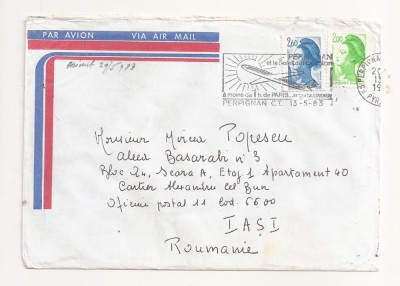 PAR AVION
VIA AIR MAIL
2,60
2,00
à moins de 1 h. de PARIS
PERPIGNAN C.T. 13-5-83
Monsieur Mircea Popescu
aleea Basarabi n° 3
Bloc 24, Scara A, Etaj 1 Apartament 40
Cartier Alexandru cel Bun
Oficiu postal 11 Cod. 6600
IAȘI
Roumanie